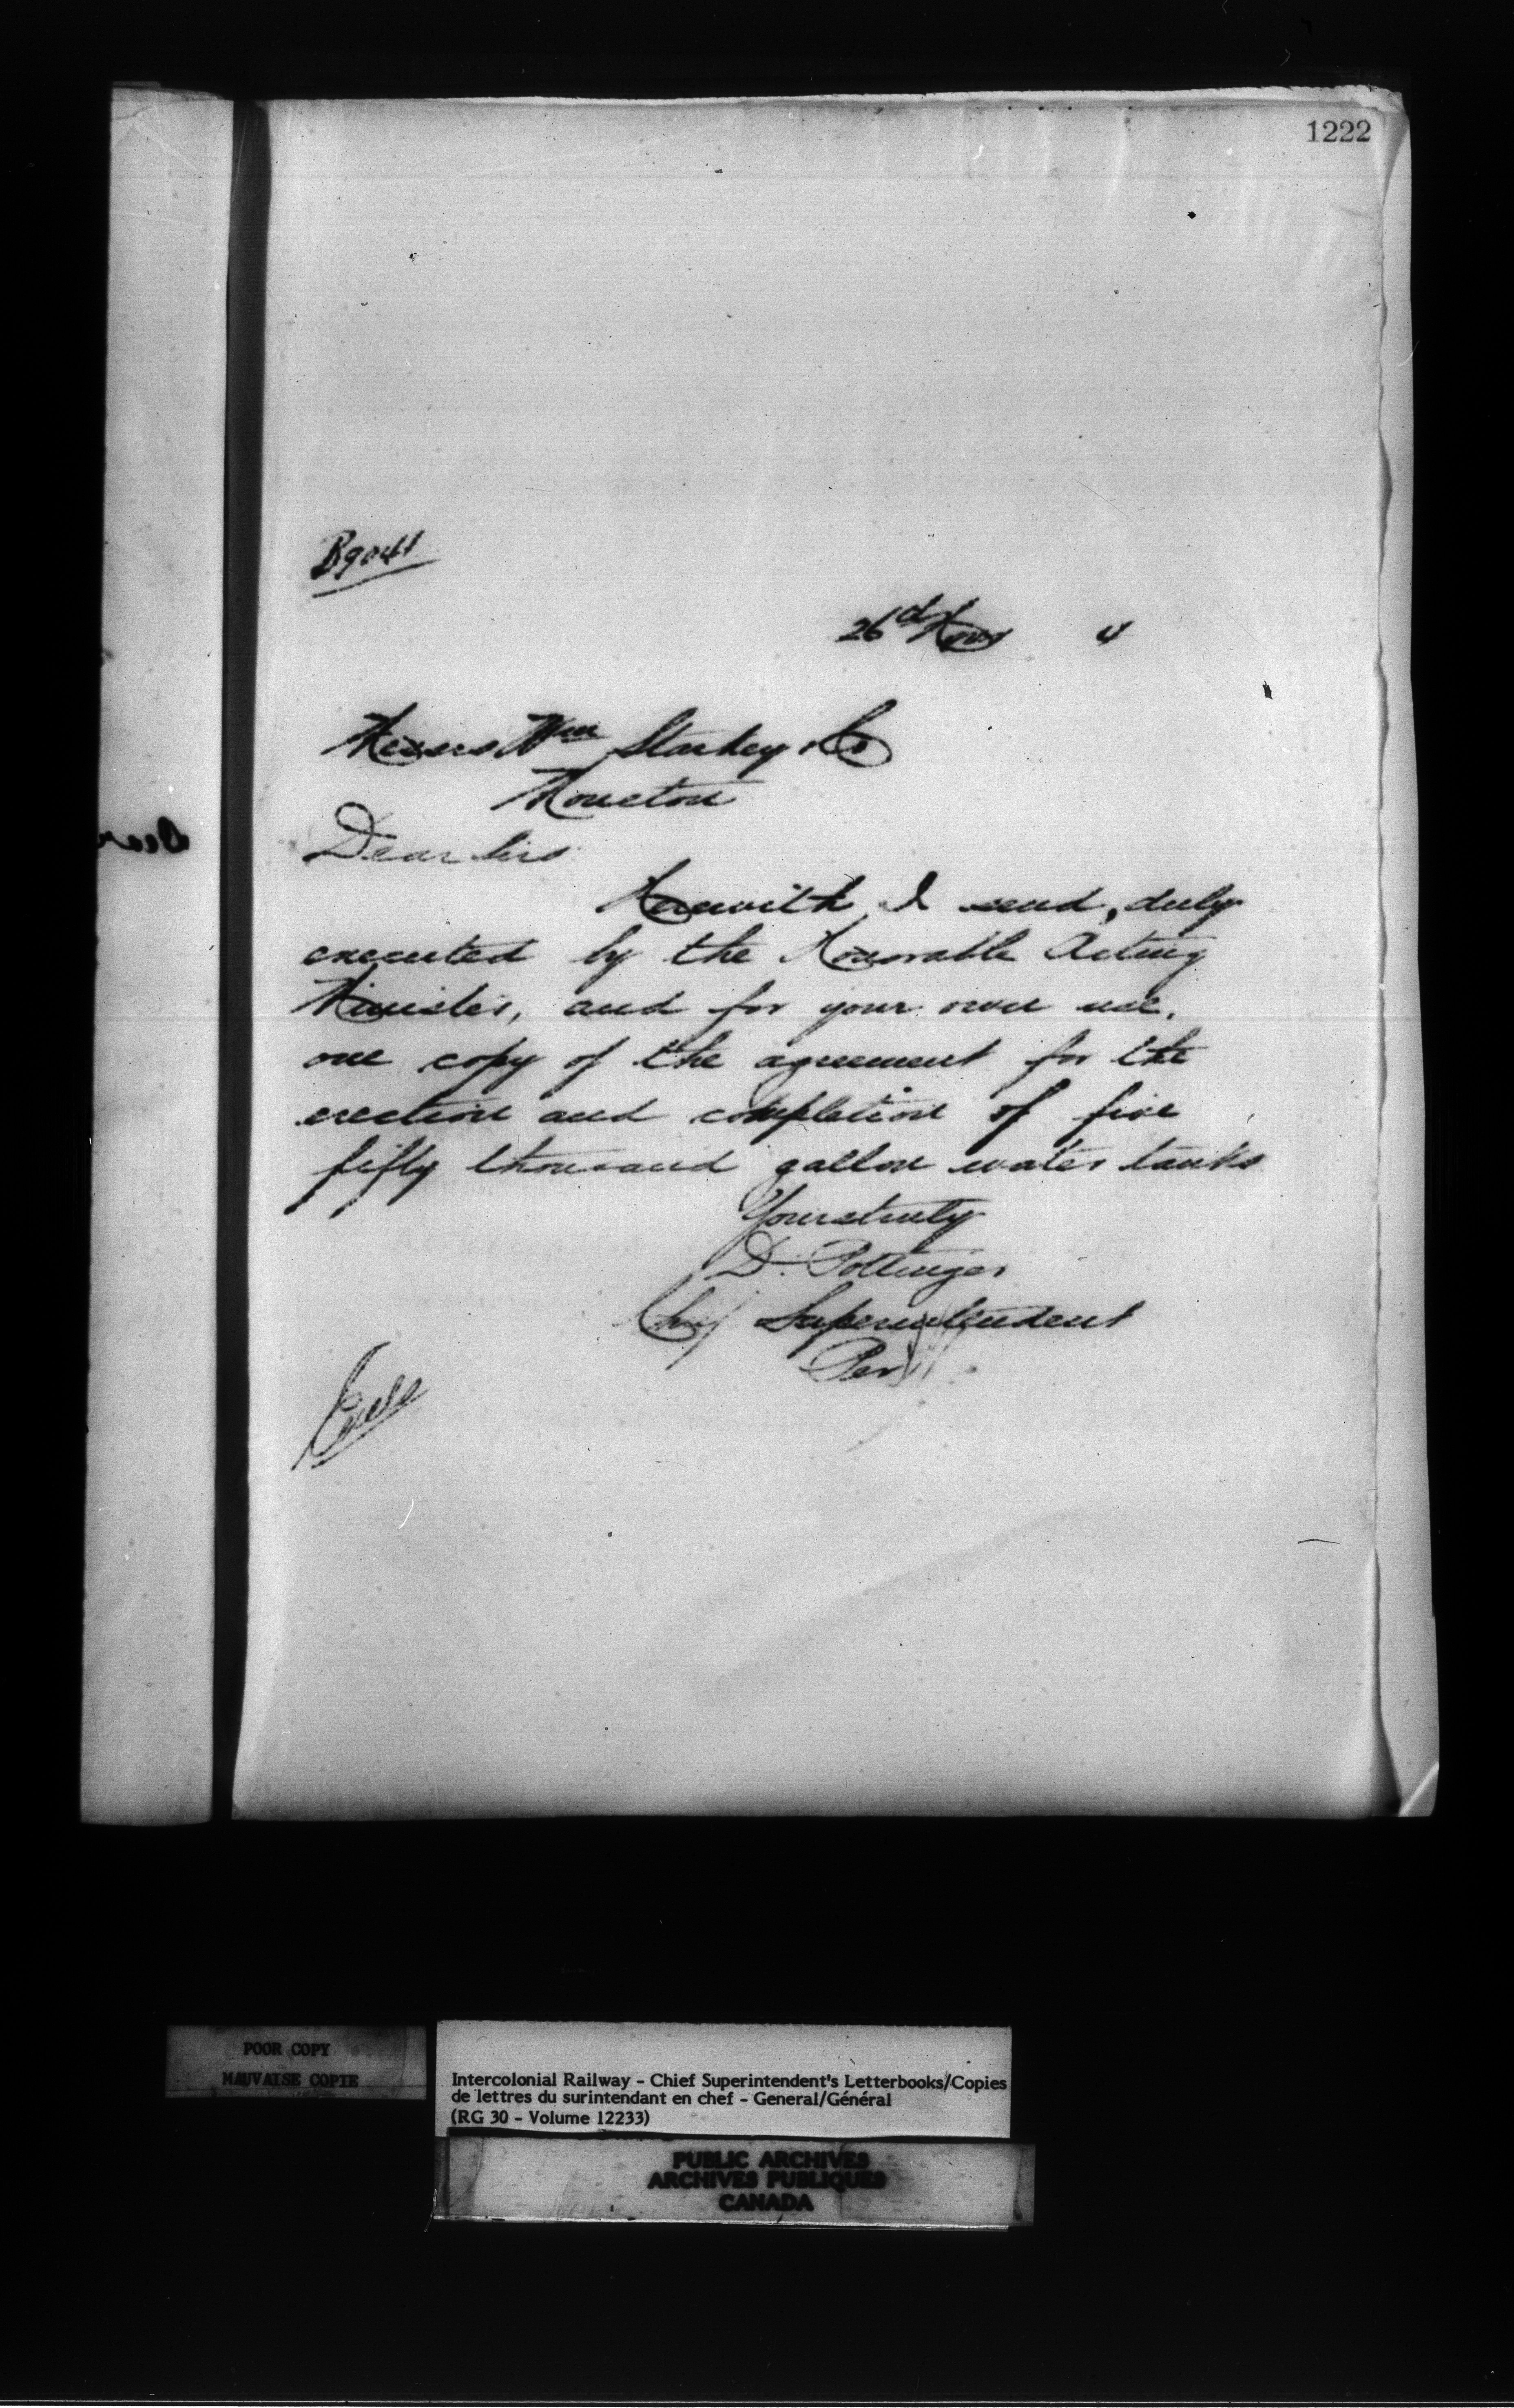 1222
B9041
26 Nov 4
Messrs Wm Starkey & Co
Moncton
Dear Sirs
Herewith I send, duly
executed by the Honorable Acting
Minister, and for your own use,
one copy of the agreement for the
erection and completion of five
fifty thousand gallon water tanks
Yours truly
D. Pottinger
Chief Superintendent
Per
Encls
POOR COPY
MAUVAISE COPIE
Intercolonial Railway - Chief Superintendent's Letterbooks/Copies
de lettres du surintendant en chef - General/Général
(RG 30 - Volume 12233)
PUBLIC ARCHIVES
ARCHIVES PUBLIQUES
CANADA